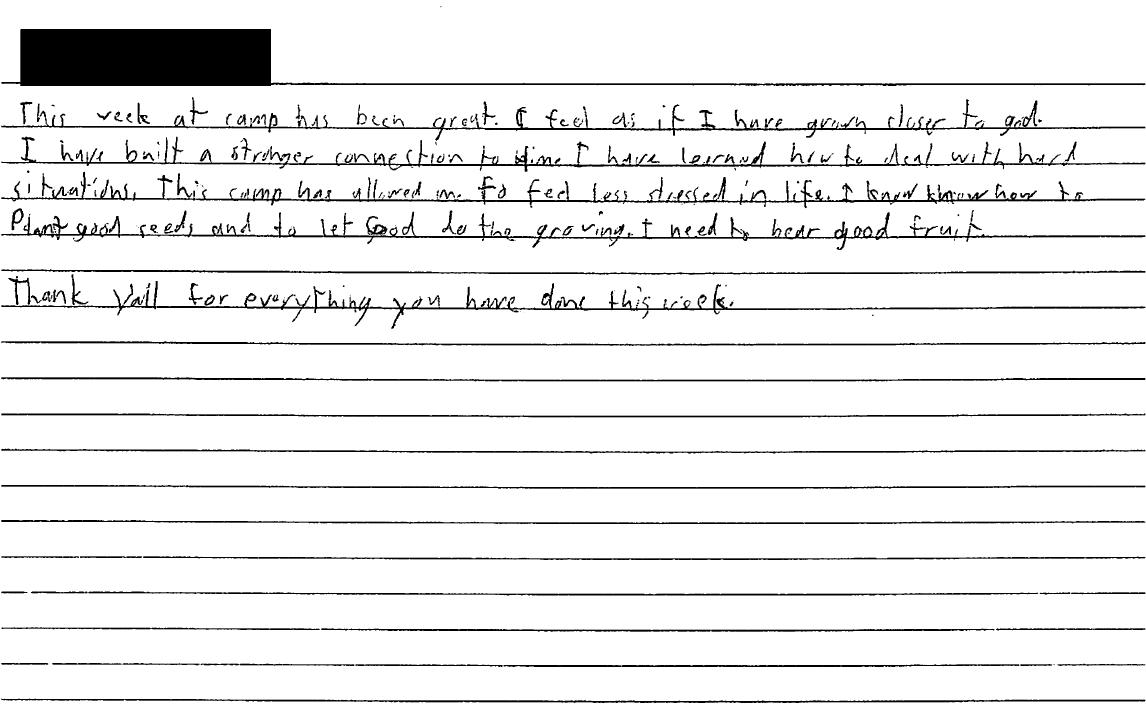 This week at camp has been great. I feel as if I have grown closer to god.
I have built a stronger connection to Him. I have learned how to deal with hard
situations. This camp has allowed me to feel less stressed in life. I know know how to
Plant good seeds and to let Good do the growing. I need to bear good fruit.
Thank Yall for everything you have done this week.